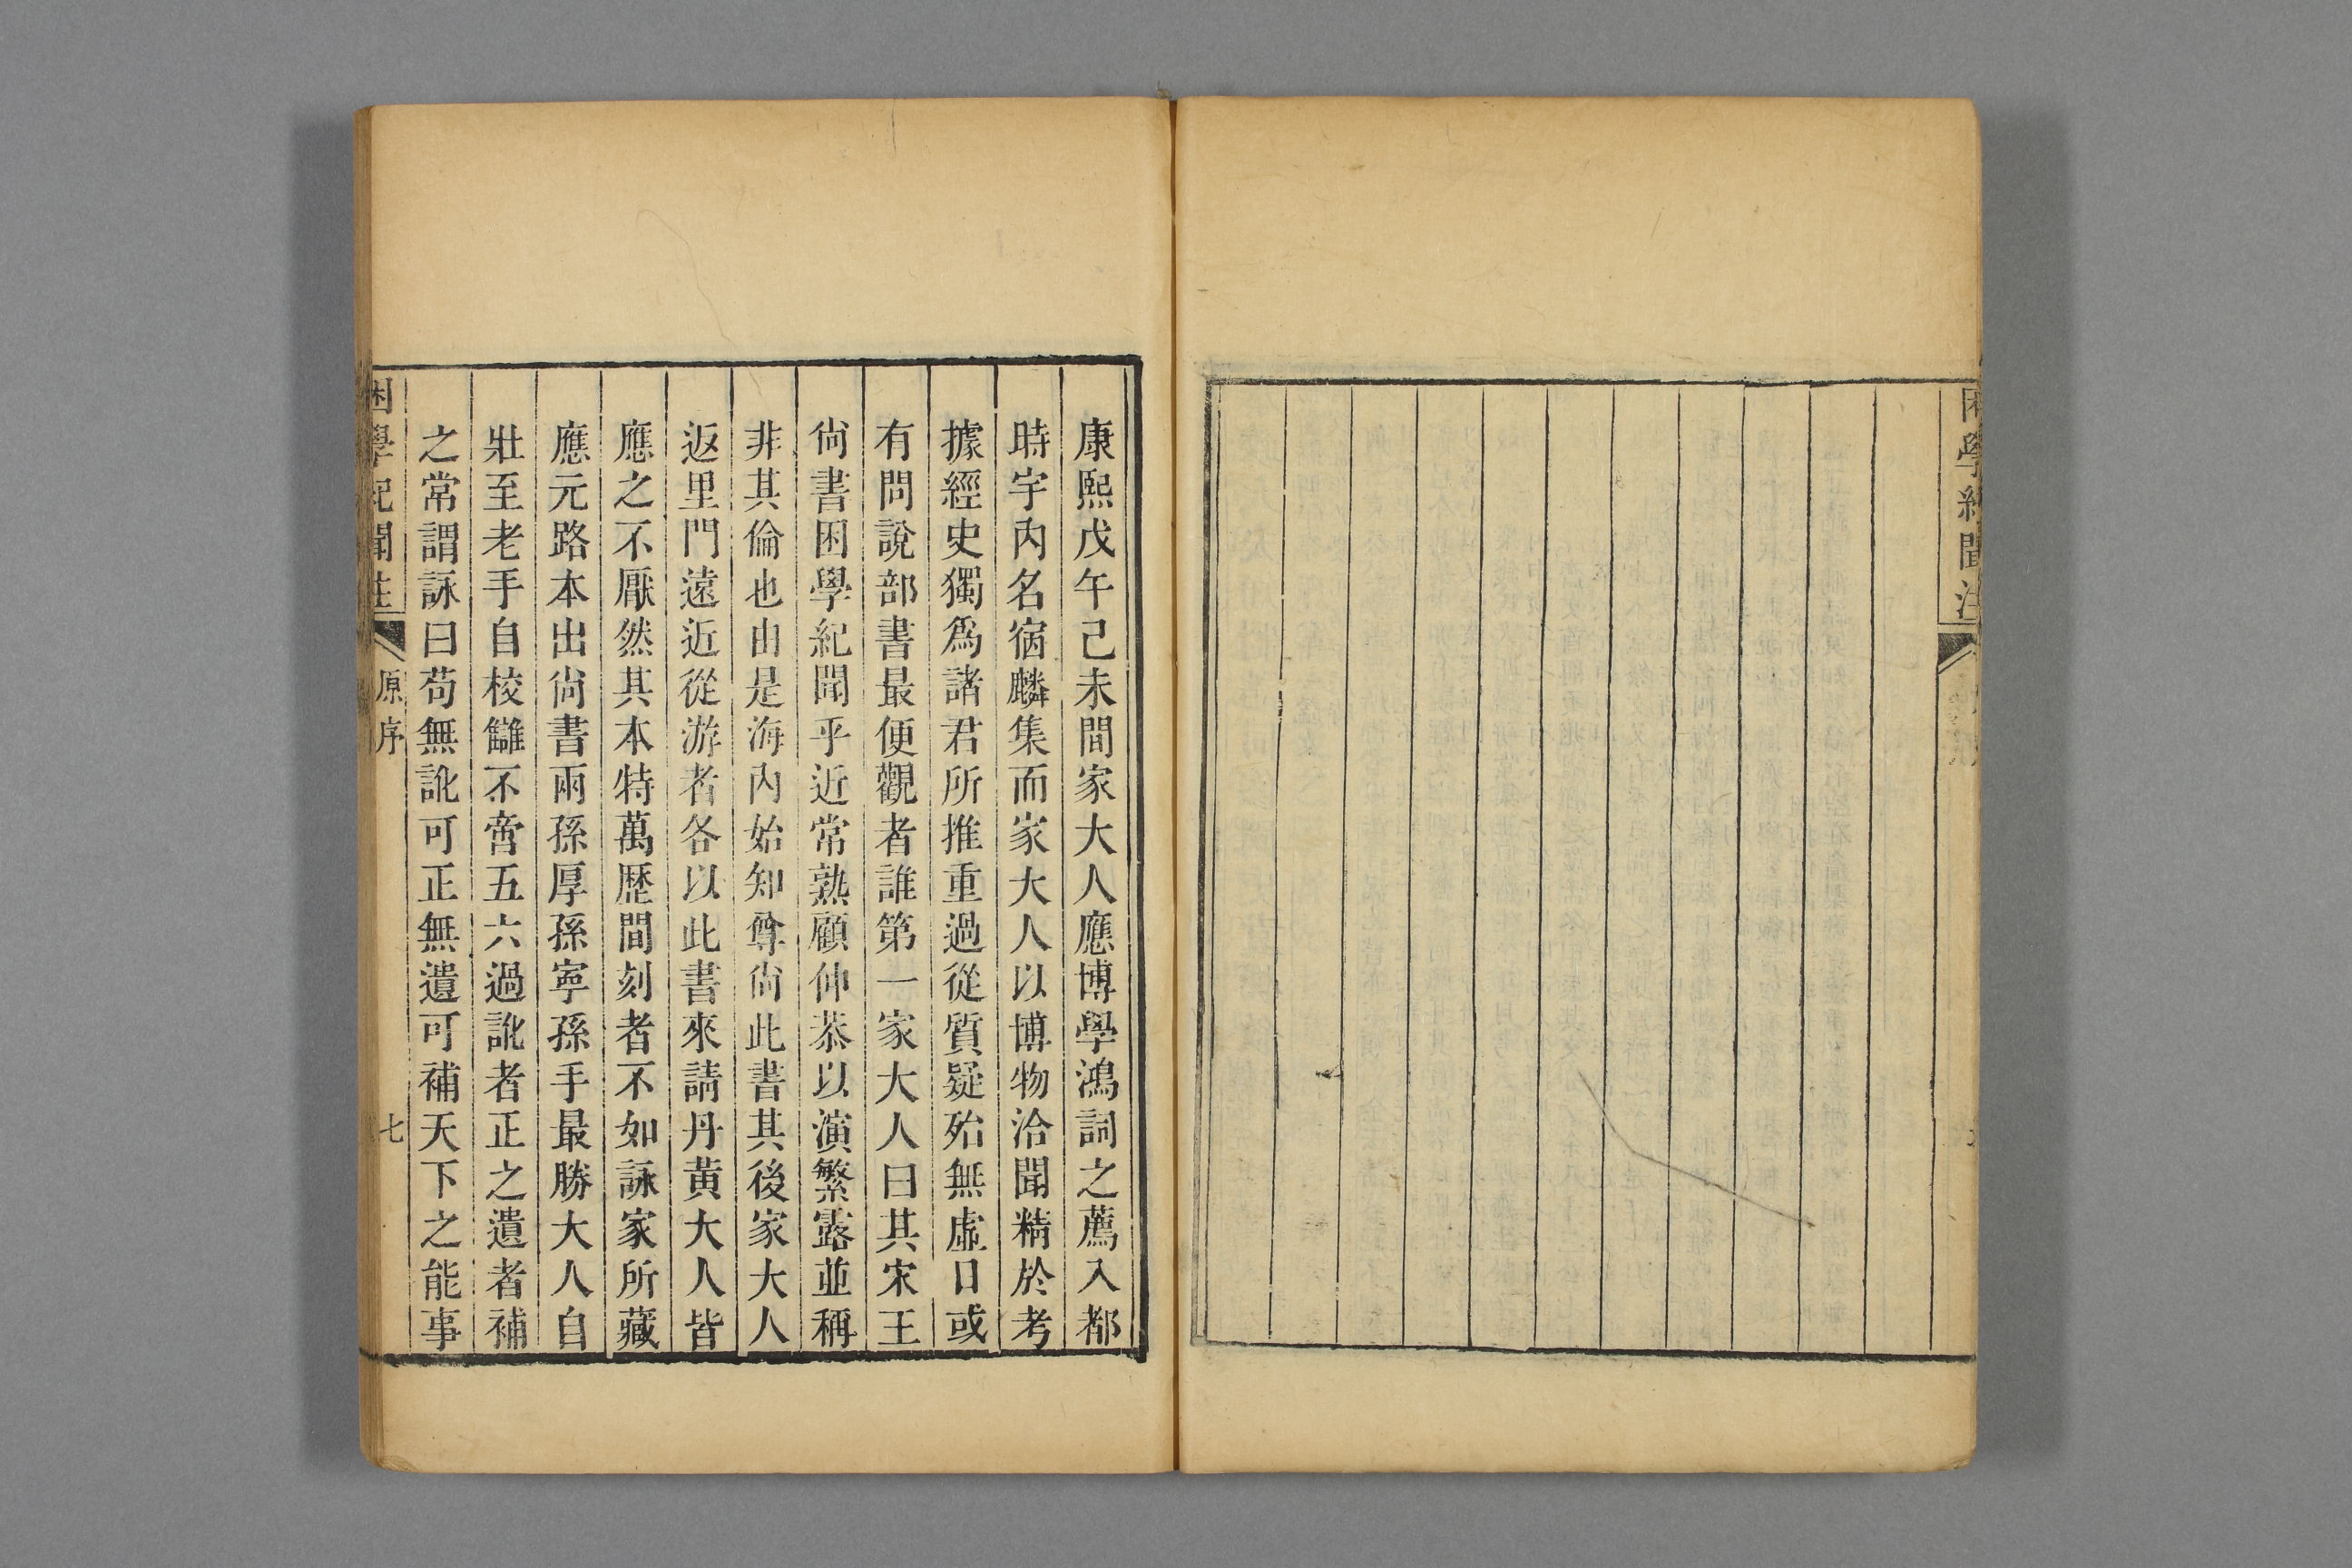 困學紀聞注
康熙戊午己未間家大人應博學鴻詞之薦入都
時宇內名宿麟集而家大人以博物洽聞精於考
據經史獨爲諸君所推重過從質疑殆無虛日或
有問說部書最便觀者誰第一家大人曰其宋王
尙書困學紀聞乎近常熟顧仲恭以演繁露並稱
非其倫也由是海內始知尊尙此書其後家大人
返里門遠近從游者各以此書來請丹黃大人皆
應之不厭然其本特萬歷間刻者不如詠家所藏
應元路本出尙書兩孫厚孫寧孫手最勝大人自
壯至老手自校讎不啻五六過訛者正之遺者補
之常謂詠曰苟無訛可正無遺可補天下之能事
困學紀聞注
原序
七